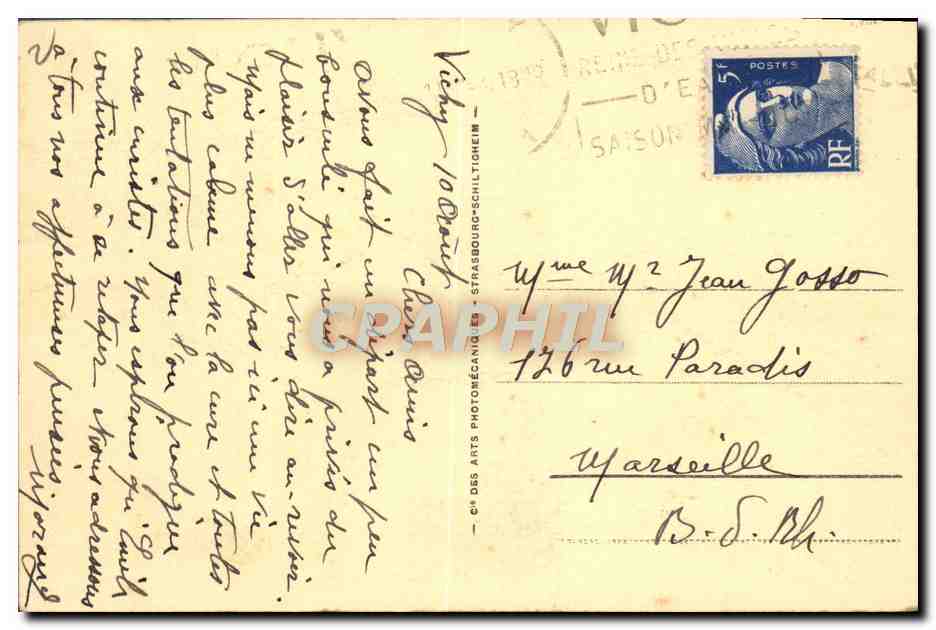 Vichy 10 Août
Chers Amis
Avons fait un départ un peu
bousculé qui nous a privés du
plaisir d'aller vous dire au-revoir.
Mais ne menons pas ici une vie
plus calme avec la cure et toutes
les tentations que l'on prodigue
aux curistes. Nous espérons qu'
continue à se retaper. Nous adressons
à tous nos affectueuses pensées
Cie DES ARTS PHOTOMÉCANIQUES - STRASBOURG-SCHILTIGHEIM -
REINE DES
D'EA
SAISON
5F
POSTES
RF
Mme Mr Jean Gosso
126 rue Paradis
Marseille
B. d. Rh.
CPAPHIL